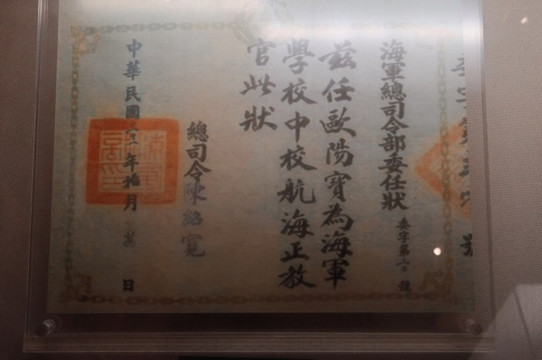 海軍總司令部委任狀
委字第 號
茲任歐陽寶為海軍
學校中校航海正教
官此狀
總司令陳紹寬
中華民國 年 月 日